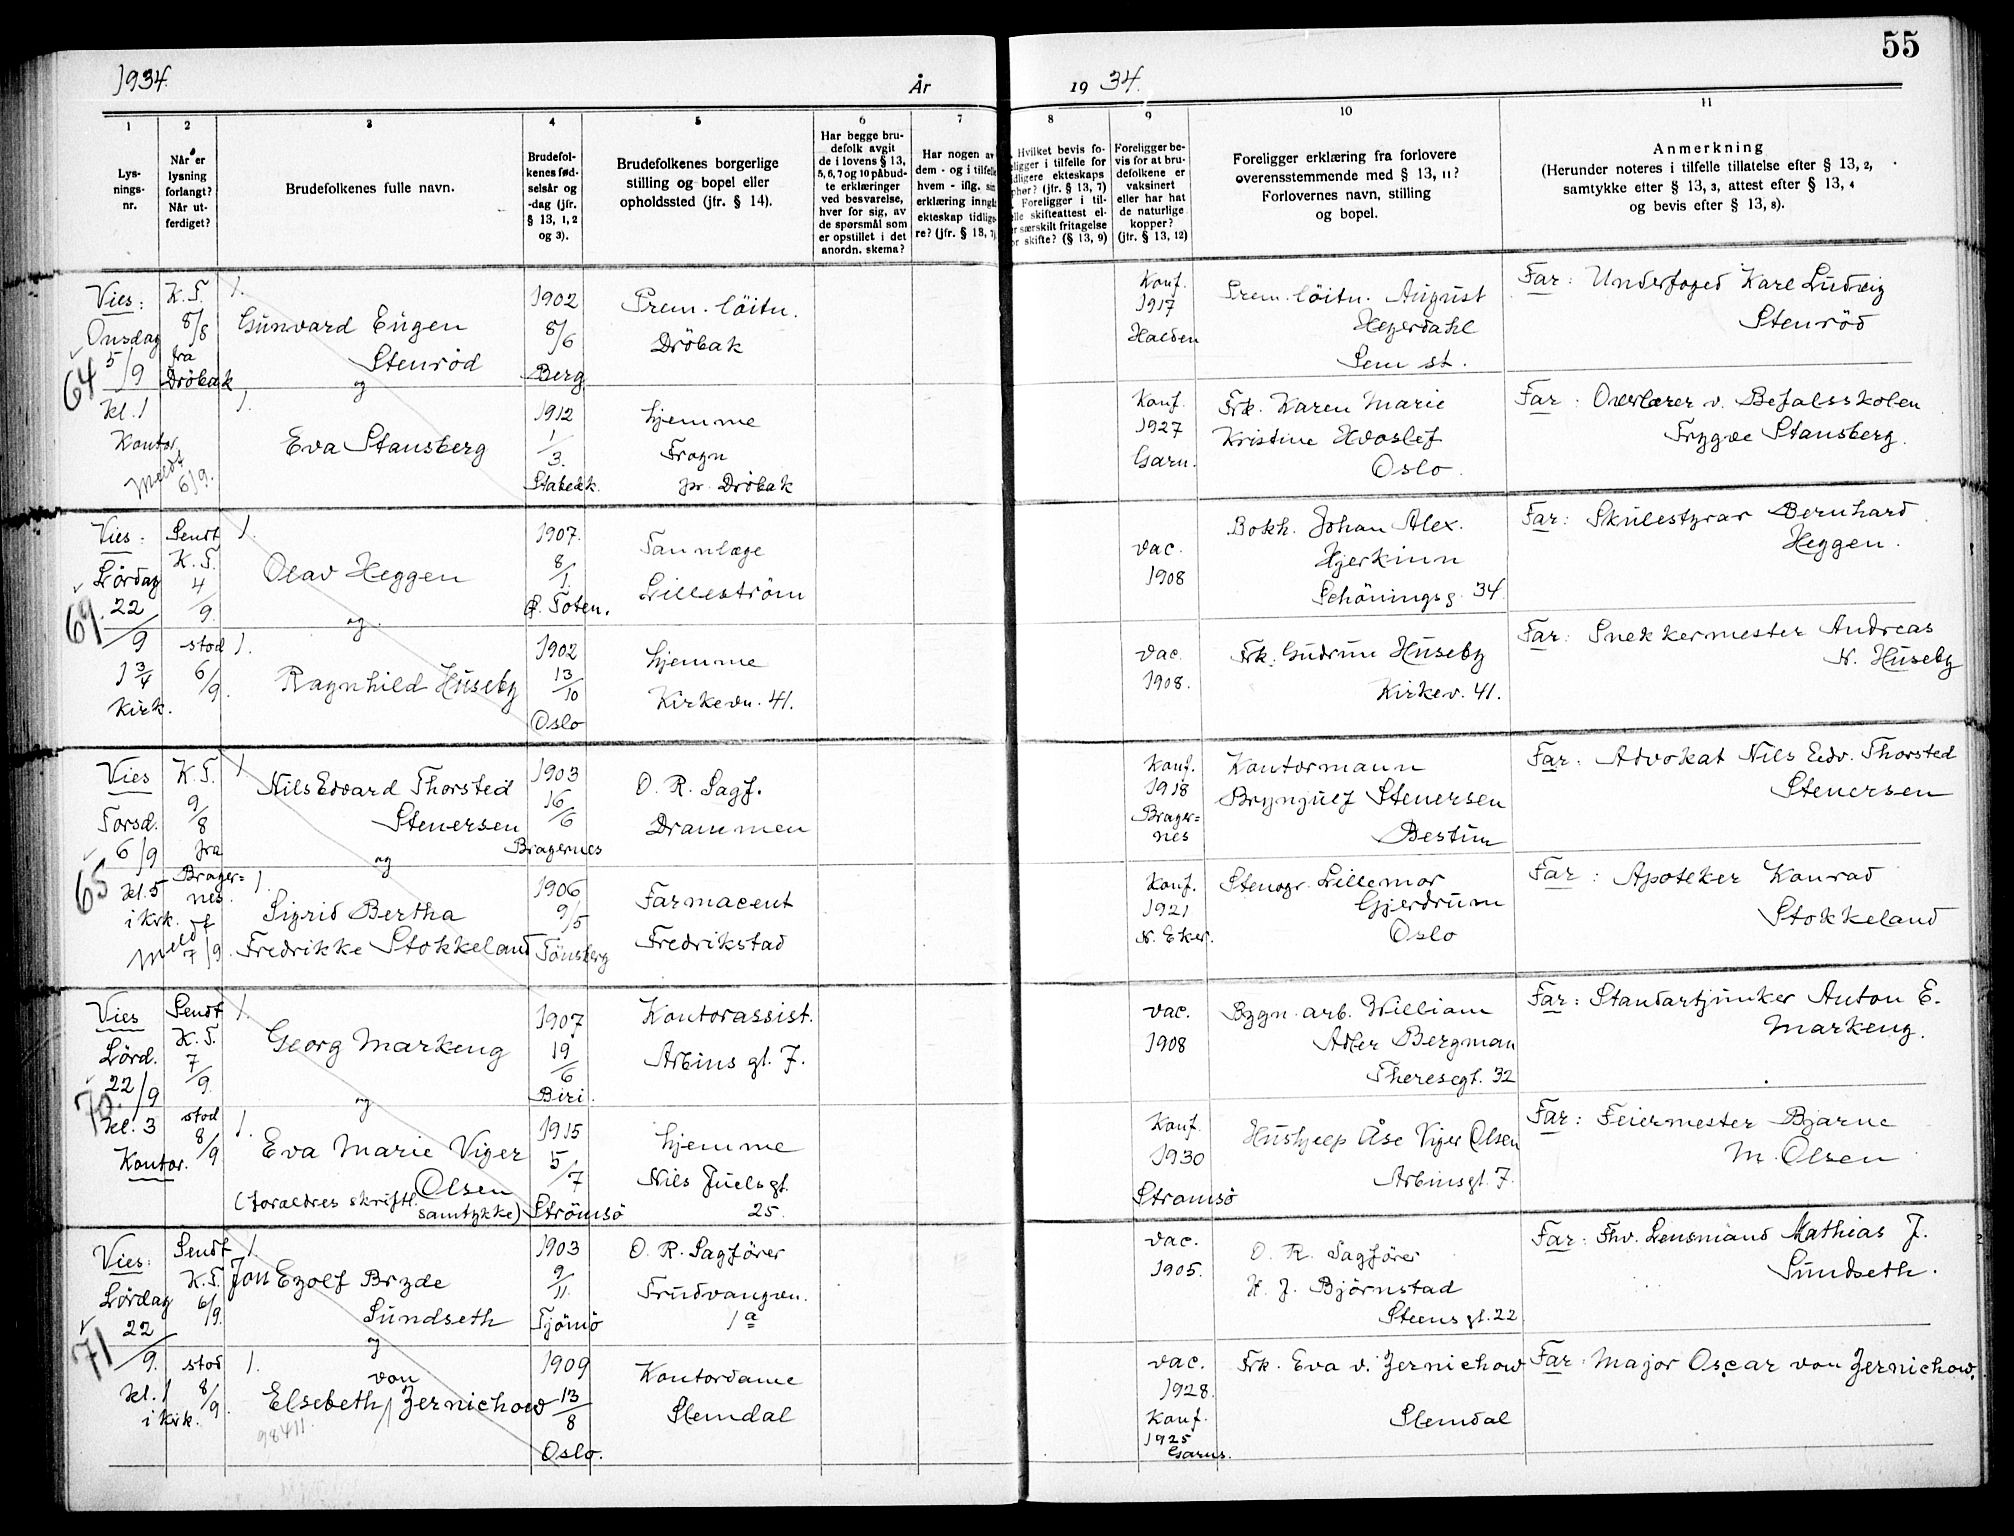 55
1934.
År
19 34.
1 2 3 4 5 6 7 8 9 10 11
Lys-
nings-
nr.
Når er
lysning
forlangt?
Når ut-
ferdiget?
Brudefolkenes fulle navn.
Brudefol-
kenes fød-
selsår og
-dag (jfr.
§ 13, 1, 2
og 3).
Brudefolkenes borgerlige
stilling og bopel eller
opholdssted (jfr. § 14).
Har begge bru-
defolk avgit
de i lovens § 13,
5, 6, 7 og 10 påbud-
te erklæringer
ved besvarelse,
hver for sig, av
de spørsmål som
er opstillet i det
anordn. skema?
Har nogen av
dem - og i tilfelle
hvem - iflg. sin
erklæring inngå
ekteskap tidlige-
re? (jfr. § 13, 7)
Hvilket bevis fo-
religger i tilfelle for
tidligere ekteskaps
ophør? (jfr. § 13, 7)
Foreligger i til-
felle skifteattest el-
er særskilt fritagelse
for skifte? (§ 13, 9)
Foreligger be-
vis for at bru-
defolkene er
vaksinert
eller har hat
de naturlige
kopper?
(jfr. § 13, 12)
Foreligger erklæring fra forlovere
overensstemmende med § 13, 11?
Forlovernes navn, stilling
og bopel.
Anmerkning
(Herunder noteres i tilfelle tillatelse efter § 13, 2,
samtykke efter § 13, 3, attest efter § 13, 4
og bevis efter § 13, 8).
64
Vies:
Onsdag
5/9
kl. 1
Kontor
Meldt
6/9.
K. T.
8/8
fra
Drøbak
1.
Gunvard Eugen
Stenrød
og
1902
8/6
Berg
Prem. löitn.
Dröbak
Konf.
1917
Halden
Prem. löitn. August
Hegerdahl
Sem st.
Far: Underfoged Karl Ludvig
Stenröd
1.
Eva Stansberg
1912
1/3.
Stabekk.
hjemme
Frogn
pr. Dröbak
Konf.
1927
Garn.
Frk. Karen Marie
Kristine Hvoslef
Oslo.
Far: Overlærer v. Befalsskolen
Trygve Stansberg.
69.
Vies:
Lördag
22/9
1 3/4
Kirk.
Sendt
K. T.
4/9.
stod
6/9.
1.
Olav Heggen
og
1907.
8/1.
Ø. Toten.
Tannlæge
Lilleström
vac.
1908
Bokh. Johan Alex.
Hjerkinn
Schöningsg. 34
Far: Skulestyrar Bernhard
Heggen.
1.
Ragnhild Huseby
1902
13/10
Oslo
hjemme
Kirkevn. 41.
vac.
1908.
Frk. Gudrun Huseby
Kirkev. 41.
Far: Snekkermester Andreas
N. Huseby
65
Vies
Torsd.
6/9
kl. 5
i kirk.
Meldt
7/9
K. T.
9/8
fra
Brager=
nes.
1
Nils Edvard Thorsted
Stenersen
og
1903
16/6
Bragernes
O. R. Sagf.
Drammen
Konf.
1918
Brager=
nes
Kontormann
Brynjulf Stenersen
Bestun
Far: Advokat Nils Edv. Thorsted
Stenersen
1.
Sigrid Bertha
Fredrikke Stokkeland
1906
9/5
Tönsberg
Farmaceut
Fredrikstad
Konf.
1921
N. Eker.
Stenogr. Lillemor
Gjerdrum
Oslo
Far: Apoteker Konrad
Stokkeland
70.
Vies
Lörd.
22/9
kl. 3
Kontor.
Sendt
K. T.
7/9.
stod
8/9
1.
Georg Markeng
og
1907
19/6
Biri.
Kontorassist.
Arbins gt. 7.
vac.
1908
Bygn. arb. William
Adler Bergman
Theresegt. 32
Far: Standartjunker Anton E.
Markeng.
1.
Eva Marie Viger
Olsen
(foreldres skriftl.
samtykke)
1915
5/7
Strömsö
hjemme
Nils Juelsgt.
25.
Konf.
1930
Stromsö
Hushjelp Åse Viger Olsen
Arbinsgt. 7.
Far: Feiermester Bjarne
M. Olsen
71
Vies:
Lördag
22/9.
kl. 1
i kirk.
Sendt
K. T.
6/9.
stod
8/9.
1
Jon Eyolf Bryde
Sundseth
og
1903
9/11.
Tjömö
O. R. Sagförer
Frudvangvn.
1 a
vac.
1905.
O. R. Sagförer
H. J. Björnstad
Steens gt. 22
Far: Fhv. Lensmand Mathias J.
Sundseth.
1.
von
Elsebeth / Jernichow
98411.
1909
13/8
Oslo.
Kontordame
Slemdal
vac.
1928.
Konf.
1925
Garns.
Frk. Eva v. Jernichow
Slemdal
Far: Major Oscar von Jernichow.